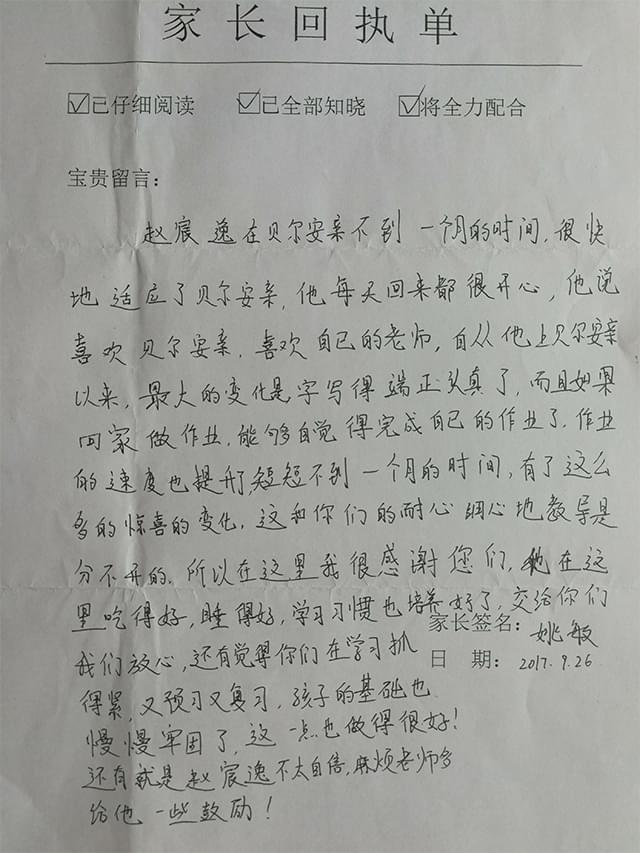 家长回执单
☑已仔细阅读 ☑已全部知晓 ☑将全力配合
宝贵留言：
赵宸逸在贝尔安亲不到一个月的时间，很快
地适应了贝尔安亲，他每天回来都很开心，他说
喜欢贝尔安亲，喜欢自己的老师，自从他上贝尔安亲
以来，最大的变化是字写得端正认真了，而且如果
回家做作业，能够自觉得完成自己的作业了，作业
的速度也提升了，短短不到一个月的时间，有了这么
多的惊喜的变化，这和你们的耐心细心地教导是
分不开的，所以在这里我很感谢您们，他在这
里吃得好，睡得好，学习习惯也培养好了，交给你们
家长签名：姚敏
我们放心，还有觉得你们在学习抓
日 期：2017.9.26
得紧，又预习又复习，孩子的基础也
慢慢牢固了，这一点也做得很好！
还有就是赵宸逸不太自信，麻烦老师多
给他一些鼓励！